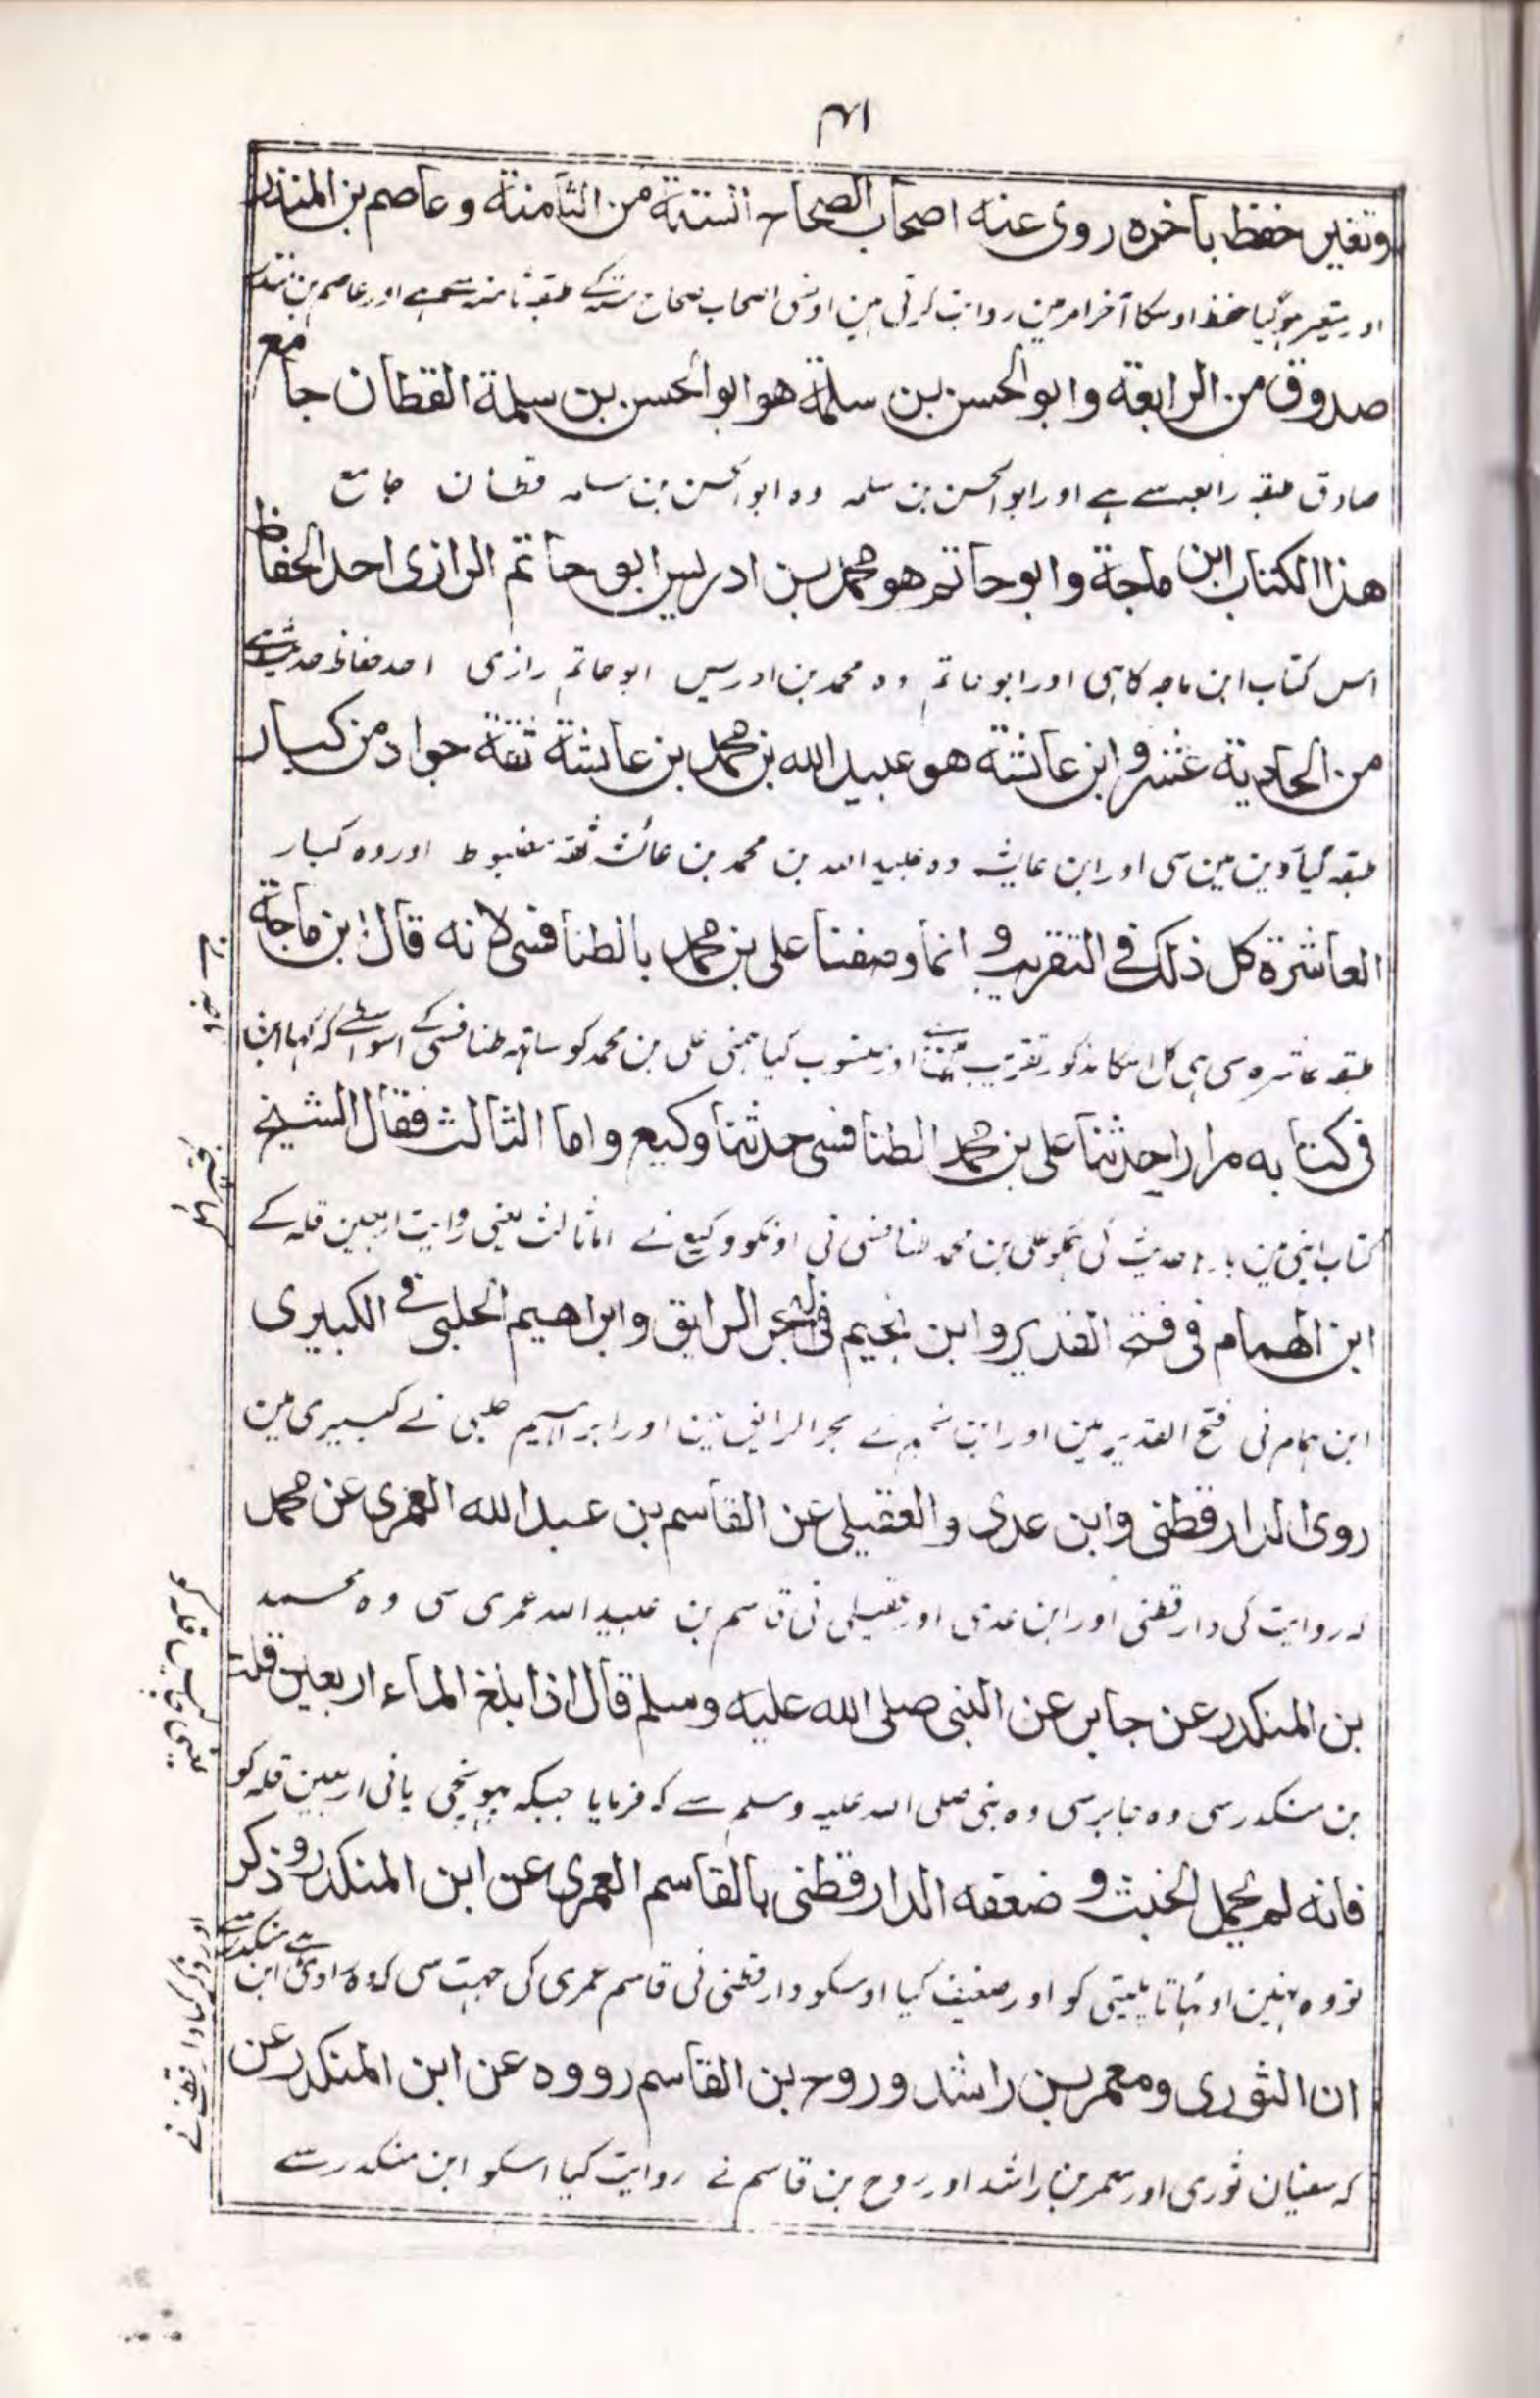 ۴۱
وتغير حفظ باخره روى عنه اصحاب الصحاح الستة من الثامنة وعاصم بن المنذر
اور متغیر ہوگیا حفظ اوسکا آخر امر مین روایت کرتی ہین اوسی اصحاب صحاح ستہ کے طبقہ ثامنہ سے ہے اور عاصم بن منذر
صدوق من الرابعة وابو الحسن بن سلمة هو ابو الحسن بن سلمة القطان جامع
صادق طبقہ رابعہ سے ہے اور ابو الحسن بن سلمہ وہ ابو الحسن بن سلمہ قطان جامع
هذا الكتاب ابن ماجة وابو حاتم هو محمد بن ادريس ابو حاتم الرازى احد الحفاظ
اس کتاب ابن ماجہ کا ہی اور ابو حاتم وہ محمد بن ادریس ابو حاتم رازی احد حفاظ حدیث سے
من الحادية عشر وابن عائشة هو عبيد الله بن محمد بن عائشة ثقة جواد من كبار
طبقہ گیاروین مین سی اور ابن عایشہ وہ عبید اللہ بن محمد بن عائشہ ثقہ مضبوط اور وہ کبار
العاشرة كل ذلك فى التقريب وانما وصفنا على بن محمد بالطنافسى لانه قال ابن ماجة
طبقہ عاشرہ سی ہی کل اسکا مذکور تقریب مین ہے اور منسوب کیا ہمنی علی بن محمد کو ساتہہ طنافسی کے اسواسطے کہ کہا ابن
فى كتابه مرارا حدثنا على بن محمد الطنافسى حدثنا وكيع واما الثالث فقال الشيخ
کتاب اپنی مین بارہا حدیث کی ہمکو علی بن محمد طنافسی نی اونکو وکیع نے اما ثالث یعنی روایت اربعین قلہ کے
ابن الهمام فى فتح القدير وابن نجيم فى البحر الرايق وابراهيم الحلبى فى الكبيرى
ابن ہمام نی فتح القدیر مین اور ابن نجیم نے بحر الرایق مین اور ابراہیم حلبی نے کبیری مین
روى الدارقطنى وابن عدى والعقيلى عن القاسم بن عبد الله العمرى عن محمد
کہ روایت کی دارقطنی اور ابن عدی اور عقیلی نی قاسم بن عبید اللہ عمری سی وہ محمد
بن المنكدر عن جابر عن النبى صلى الله عليه وسلم قال اذا بلغ الماء اربعين قلة
بن منکدر سی وہ جابر سی وہ نبی صلی اللہ علیہ وسلم سے کہ فرمایا جبکہ پہونچی پانی اربعین قلہ کو
فانه لم يحمل الخبث وضعفه الدارقطنى بالقاسم العمرى عن ابن المنكدر وذكر
تو وہ نہین اوٹہاتا پلیتی کو اور ضعیف کیا اوسکو دارقطنی نی قاسم عمری کی جہت سی کہ وہ راوی ابن منکدر سے ہے
اور ذکر کیا دارقطنی نے
ان الثورى ومعمر بن راشد وروح بن القاسم رووه عن ابن المنكدر عن
کہ سفیان ثوری اور معمر بن راشد اور روح بن قاسم نے روایت کیا اسکو ابن منکدر سے